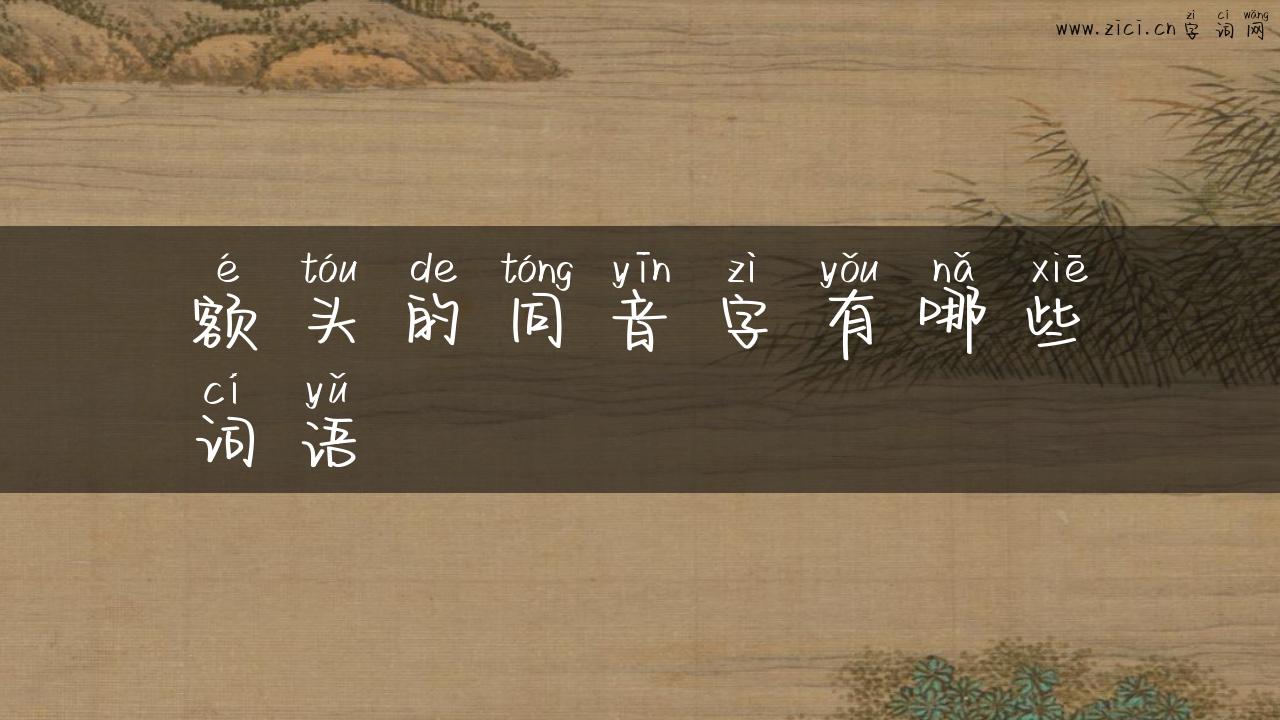 zì cí wǎng
www.zici.cn 字词网
é tóu de tóng yīn zì yǒu nǎ xiē
额头的同音字有哪些
cí yǔ
词语